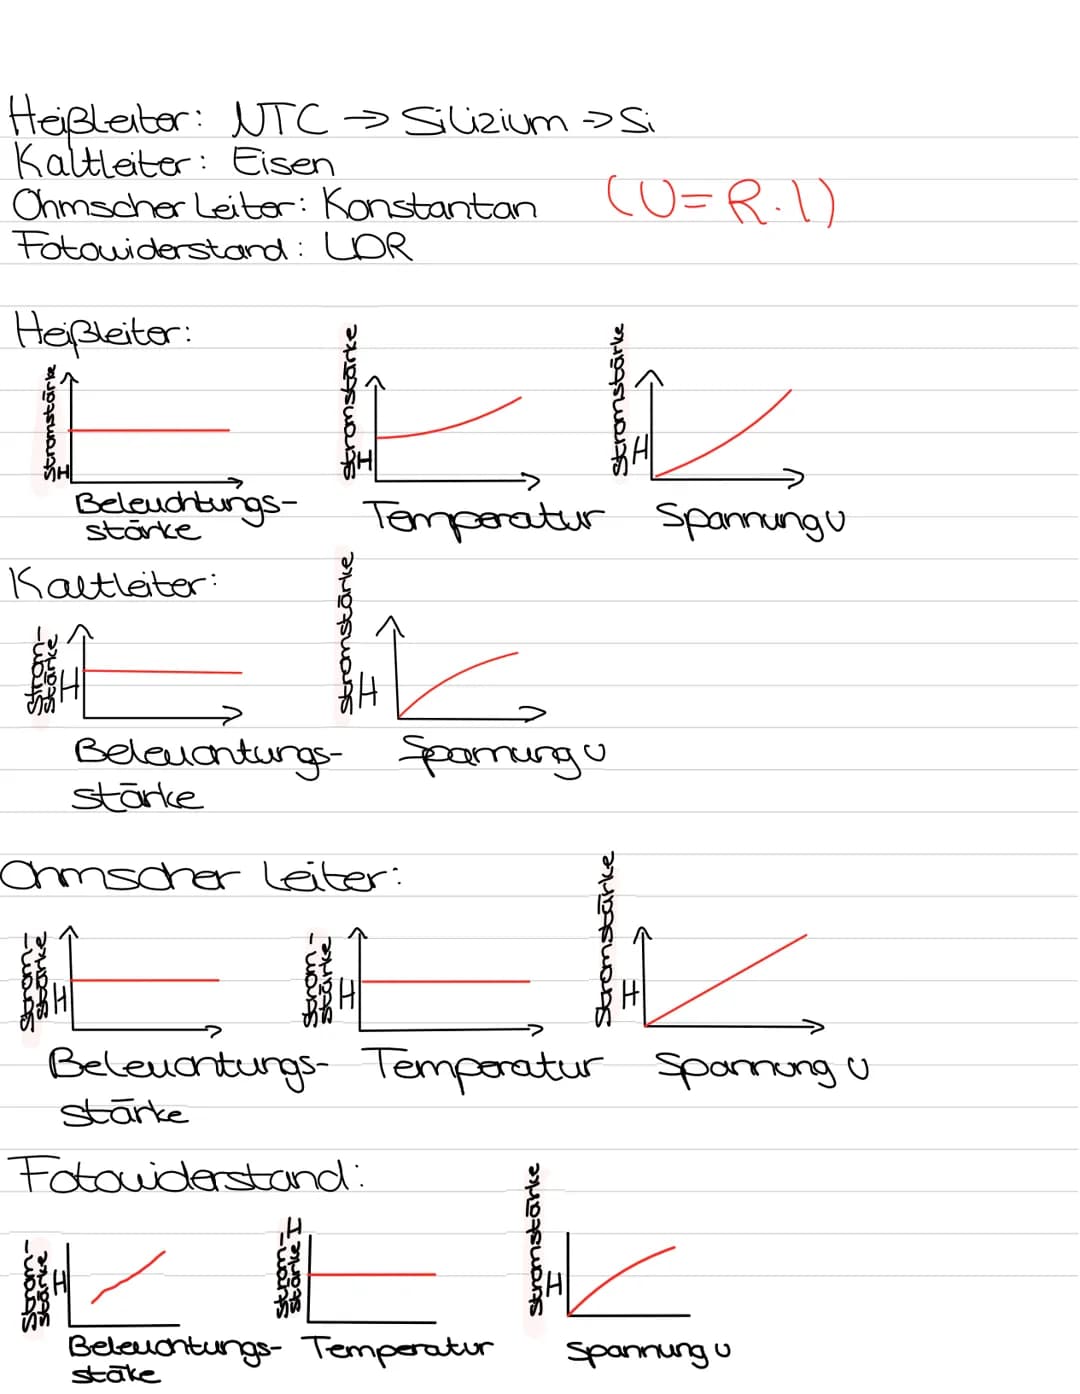 Heißleiter: NTC → Silizium → Si
Kaltleiter: Eisen
Ohmscher Leiter: Konstantan (U=R·I)
Fotowiderstand: LDR
Heißleiter:
Stromstärke I
Stromstärke I
Stromstärke I
Beleuchtungs-
stärke
Temperatur
Spannung U
Kaltleiter:
Strom-
stärke I
Stromstärke I
Beleuchtungs-
stärke
Spannung U
Ohmscher Leiter:
Strom-
stärke I
Strom-
stärke I
Stromstärke I
Beleuchtungs-
stärke
Temperatur
Spannung U
Fotowiderstand:
Strom-
stärke I
Strom-
stärke I
Stromstärke I
Beleuchtungs-
stäke
Temperatur
Spannung U